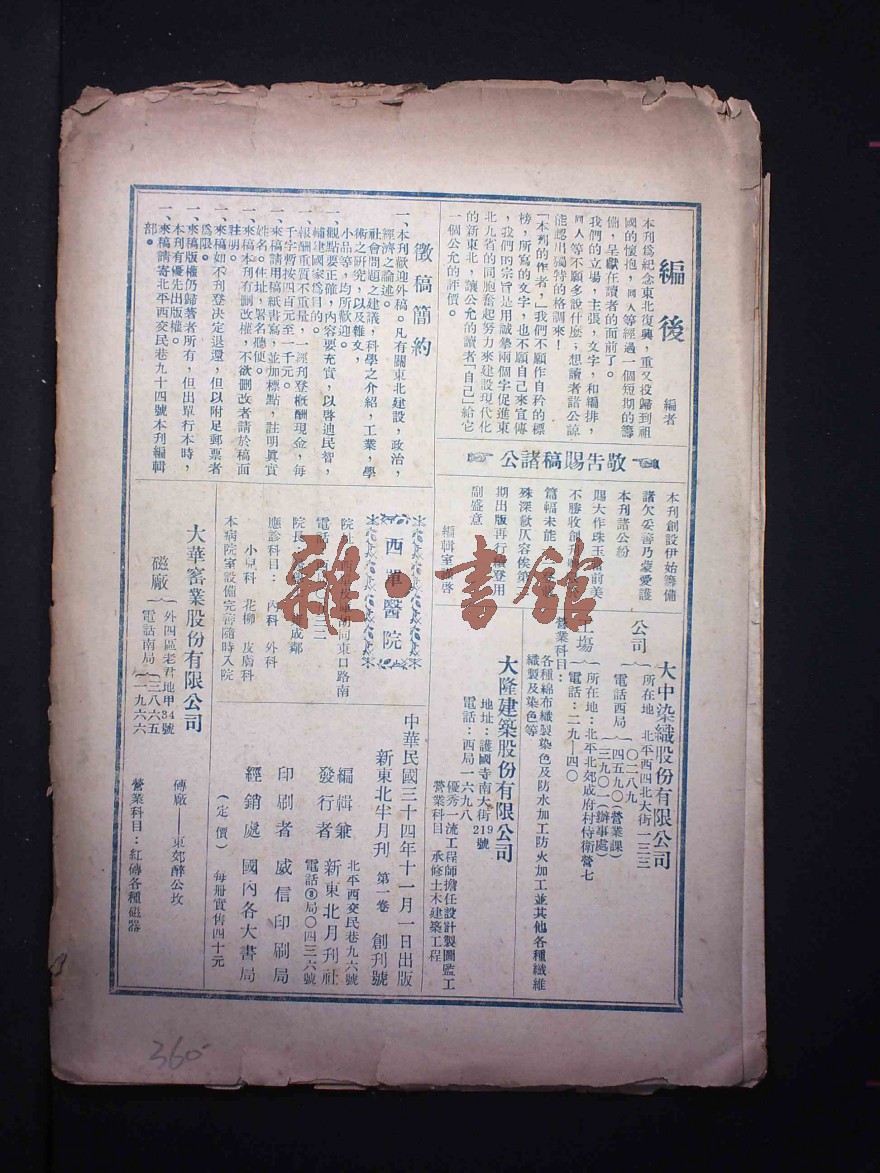 編後
編者
本刊爲紀念東北復興，重又投歸到祖
國的懷抱，同人等經過一個短期的籌
備，呈獻在讀者的面前了。
我們的立場，主張，文字，和編排，
同人等不願多說什麽，想讀者諸公諒
能認出獨特的格調來！
「本刊的作者，」我們不願作自矜的標
榜，所寫的文字，也不願自己來宣傳
，我們的宗旨是用誠摯兩個字促進東
北九省的同胞奮起努力來建設現代化
的新東北，讓公允的讀者「自己」給它
一個公允的評價。
徵稿簡約
一、本刊歡迎外稿。凡有關東北建設，政治，
經濟之論述。
社會問題之建議，科學之介紹，工業，學
術之研究，以及雜文，
小品等，均所歡迎。
一、觀點要正確，內容要充實，以啓迪民智，
輔建國家爲目的。
一、報酬重質不重量，一經刋登概酬現金，每
千字暫按四百元至一千元。
一、來稿請用稿紙書寫，並加標點，註明眞實
姓名。住址，署名聽便。
一、來稿本刊有刪改權，不欲刪改者請於稿面
註明。
一、來稿如不刋登決定退還，但以附足郵票者
爲限。
一、來稿版權仍歸著者所有，但出單行本時，
本刊有優先出版權。
一、來稿請寄北平西交民巷九十四號本刊編輯
部。
敬告賜稿諸公
本刊創設伊始籌備
諸欠妥善乃蒙愛護
本刊諸公紛
賜大作珠玉
前美
不勝收創刊
篇幅未能
殊深歉仄容俟第
期出版再行
登用
副盛意
編輯室
啓
西單醫院
院址
胡同東口路南
電話
院長
成鄰
應診科目：內科 外科
小兒科 花柳 皮膚科
本病院室設備完善隨時入院
大華窰業股份有限公司
磁廠
外四區老君地甲34號
電話南局（三八六五
（二九六六
磚廠——東郊醉公坟
營業科目：紅磚各種磁器
大中染織股份有限公司
公司
所在地 北平西四北大街一三三
電話西局
（〇二八九
（四五九〇（營業課）
（三九〇一（辦事處）
工塲
所在地：北平北郊成府村侍衛營七
電話：二九—四〇
營業科目：
各種綿布織製染色及防水加工防火加工並其他各種纖維
織製及染色等
大隆建築股份有限公司
地址：護國寺南大街219號
電話：西局一六九八
優秀一流工程師擔任設計製圖監工
營業科目 承修土木建築工程
中華民國三十四年十一月一日出版
新東北半月刊 第一卷 創刊號
編輯兼
發行者
北平西交民巷九六號
新東北月刊社
電話③局〇四三六號
印刷者 威信印刷局
經銷處 國內各大書局
（定價） 每册實售四十元
雜·書館
360